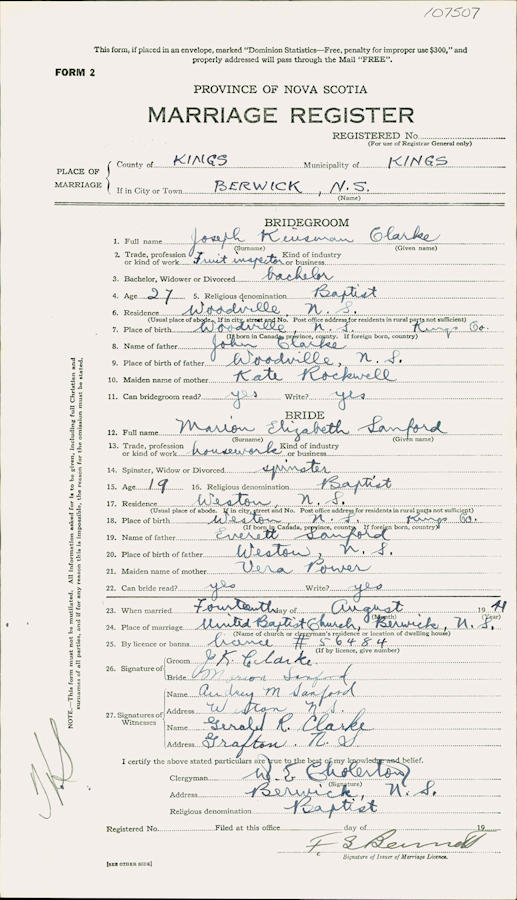 107507
This form, if placed in an envelope, marked "Dominion Statistics—Free, penalty for improper use $300," and
properly addressed will pass through the Mail "FREE".
FORM 2
PROVINCE OF NOVA SCOTIA
MARRIAGE REGISTER
REGISTERED No.
(For use of Registrar General only)
PLACE OF MARRIAGE
County of KINGS Municipality of KINGS
If in City or Town BERWICK, N.S.
(Name)
BRIDEGROOM
1. Full name Joseph Kinsman Clarke
(Surname) (Given name)
2. Trade, profession or kind of work Fruit inspector Kind of industry or business
3. Bachelor, Widower or Divorced bachelor
4. Age 27 5. Religious denomination Baptist
6. Residence Woodville, N.S.
(Usual place of abode. If in city, street and No. Post office address for residents in rural parts not sufficient)
7. Place of birth Woodville, N.S. Kings Co.
(If born in Canada, province, county. If foreign born, country)
8. Name of father John Clarke
9. Place of birth of father Woodville, N.S.
10. Maiden name of mother Kate Rockwell
11. Can bridegroom read? yes Write? yes
BRIDE
12. Full name Marion Elizabeth Sanford
(Surname) (Given name)
13. Trade, profession or kind of work housework Kind of industry or business
14. Spinster, Widow or Divorced spinster
15. Age 19 16. Religious denomination Baptist
17. Residence Weston, N.S.
(Usual place of abode. If in city, street and No. Post office address for residents in rural parts not sufficient)
18. Place of birth Weston N.S. Kings Co.
(If born in Canada, province, county. If foreign born, country)
19. Name of father Everett Sanford
20. Place of birth of father Weston, N.S.
21. Maiden name of mother Vera Power
22. Can bride read? yes Write? yes
23. When married Fourteenth day of August 19
(Month) (Year)
24. Place of marriage United Baptist Church, Berwick, N.S.
(Name of church or clergyman's residence or location of dwelling house)
25. By licence or banns licence # 56484
(If by licence, give number)
26. Signature of
Groom J K Clarke
Bride Marion Sanford
27. Signatures of Witnesses
Name Audrey M Sanford
Address Weston N.S.
Name Gerald R. Clarke
Address Grafton N.S
I certify the above stated particulars are true to the best of my knowledge and belief.
Clergyman W. E Cholerton
(Signature)
Address Berwick, N.S.
Religious denomination Baptist
Registered No. Filed at this office day of 19
F S Bennett
Signature of Issuer of Marriage Licence.
[SEE OTHER SIDE]
NOTE.—This form must not be mutilated. All information asked for is to be given, including full Christian and
surnames of all parties, and if for any reason this is impossible, the reason for the omission must be stated.